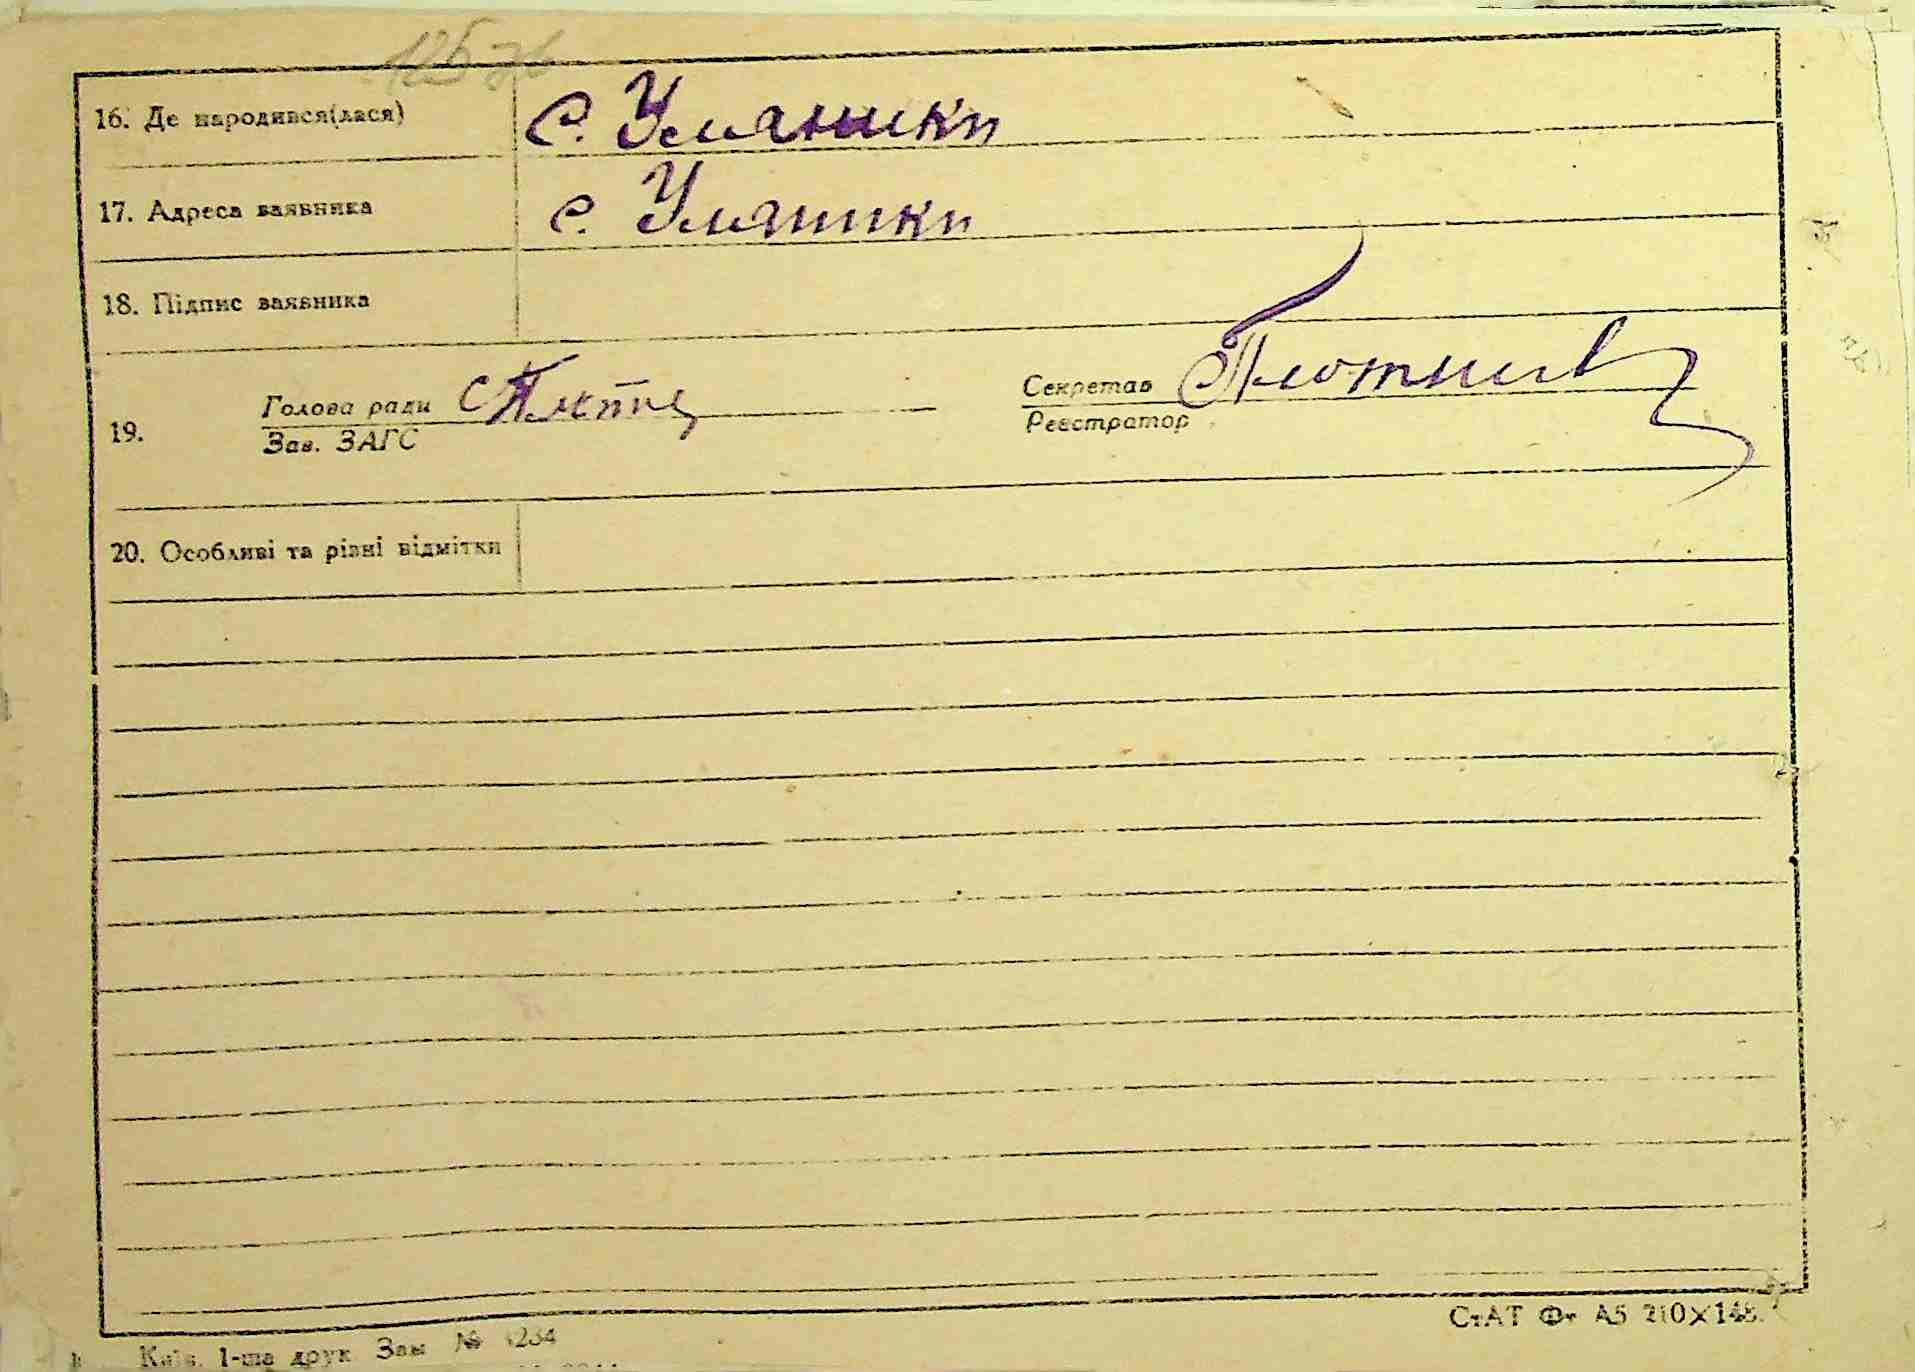 125 зв
16. Де народився(лася) с. Уляники
17. Адреса заявника с. Уляники
18. Підпис заявника
19. Голова ради
Зав. ЗАГС
Секретар
Реєстратор
20. Особливі та різні відмітки
СтАТ Фт А5 210×148.
Київ. 1-ша друк Зам №